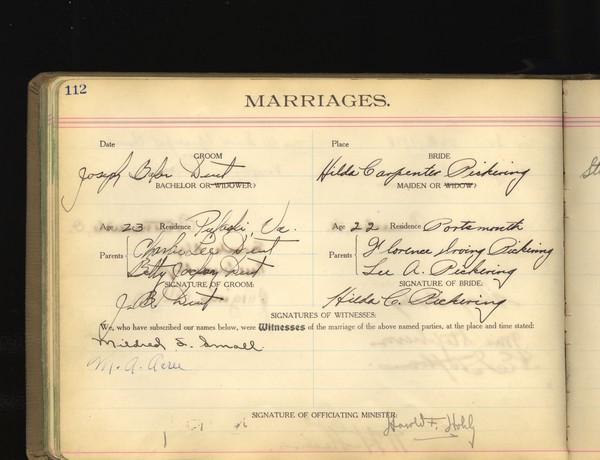 112
MARRIAGES.
Date Place
GROOM BRIDE
Joseph Dent Hilda Carpenter Pickering
BACHELOR OR WIDOWER? MAIDEN OR WIDOW?
Age 23 Residence Pulaski, Va. Age 22 Residence Portsmouth
Parents Charlie Lee Dent Florence Irving Pickering
Betty Dent Lee A. Pickering
SIGNATURE OF GROOM: SIGNATURE OF BRIDE:
J. B. Dent Hilda C. Pickering
SIGNATURES OF WITNESSES:
We, who have subscribed our names below, were Witnesses of the marriage of the above named parties, at the place and time stated:
Mildred S. Small
M. A. Acree
SIGNATURE OF OFFICIATING MINISTER:
Harold F.